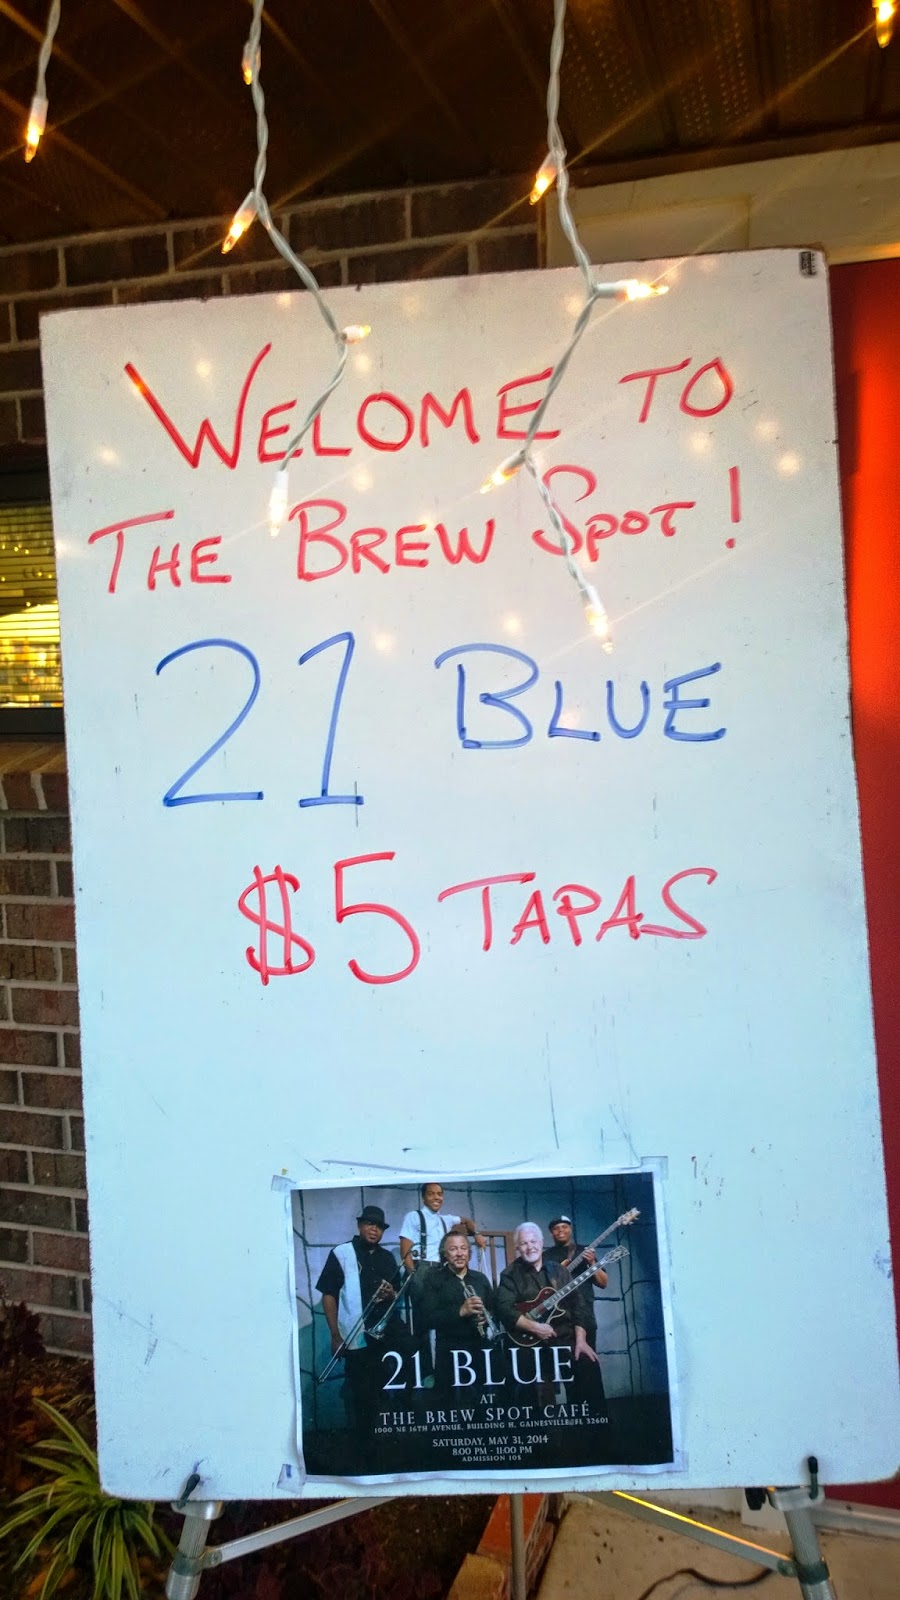 WELOME TO
THE BREW SPOT!
21 BLUE
$5 TAPAS
21 BLUE
AT
THE BREW SPOT CAFÉ
1000 NE 16TH AVENUE, BUILDING H, GAINESVILLE, FL 32601
SATURDAY, MAY 31, 2014
8:00 PM - 11:00 PM
ADMISSION 10$